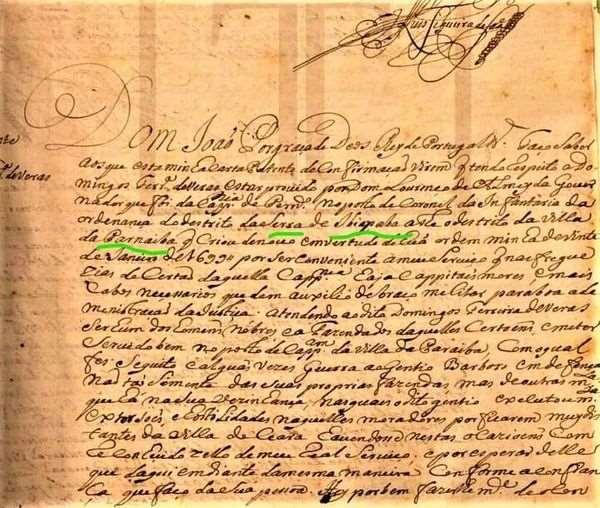 nte
Frª. de Veras
Dom Joaõ Por graça de Deos Rey de Portugal &ª. Faço Saber
aos que esta minha Carta Patente de Confirmaçaõ virem q̃ tendo respeito a Do-
mingos Ferrª. de Veras estar provido por Dom Lourenco de Almeyda Gover
nador que foi da Cappnia de Pern.co no posto de Coronel da Infantaria da
ordenança do destrito da Serra de athe o destrito da Villa
da Parnaiba q̃ Criou de novo em virtude de hũa ordem minha de vinte
de Janeiro de 1699 por ser conveniente a meu serviço q̃ nas fregue
zias do Certaõ daquella Cappnia haja Cappitais mores e mais
Cabos necessarios que dem auxilio de braço melitar para boa ad
menistraçaõ da Justiça. Atendendo ao dito Domingos Ferreira de Veras
Ser hum dos homens nobres e a Fazendados daquelles Certoens e me ter
servido bem no posto de Cappam. da Villa da Paraiba, com o qual
fes alguas vezes Guerra ao Gentio Barbaro em
naõ taõ sómente das suas proprias fazendas, mas de outras m.tas
que ha na sua vezinhança, nas quais o dito gentio
extorçoês, e hostilidades naquelles moradores por ficarem muy dis
tantes da Villa do Ceará havendose nestas ocazioens com
Conhecido zello do meu Real Serviço. e por esperar delle
que daqui em diante da mesma maneira conforme a confian
ça que faço da sua pesoa. Hey por bem fazerlhe m.ce de o Con